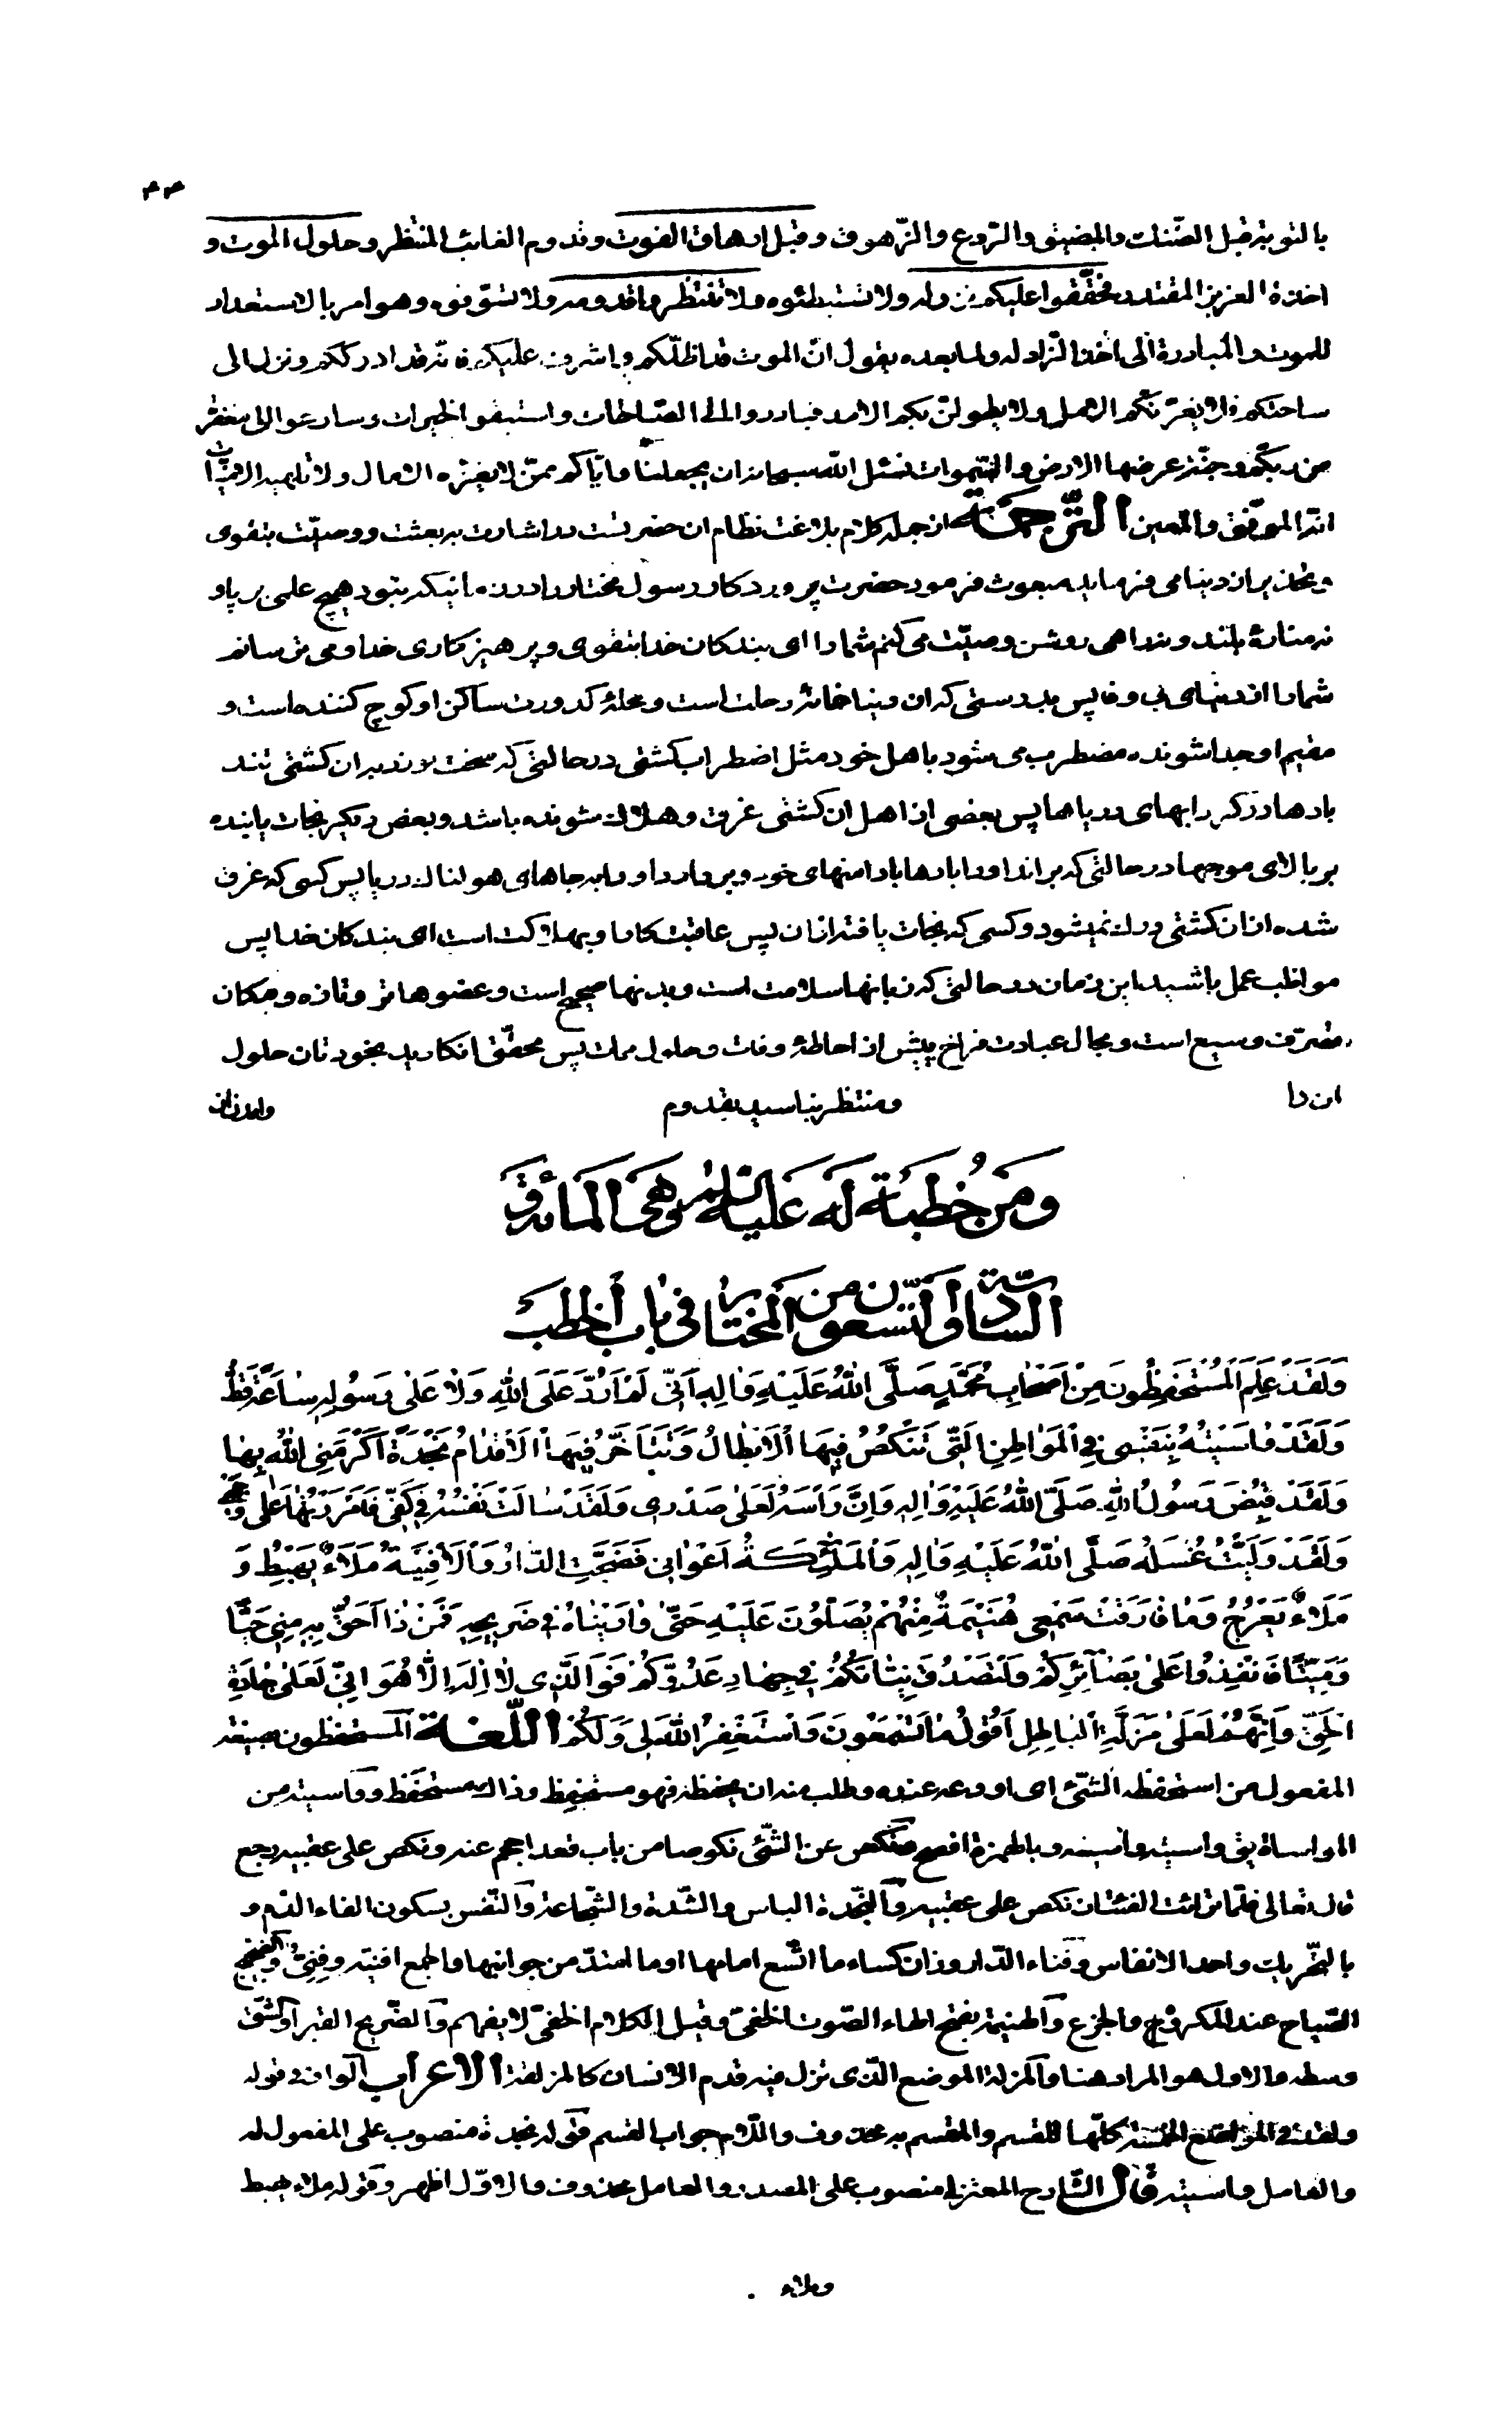 بالتوبة قبل الضنك والمضيق والرّوع والزّهوق وقبل ارهاق الفوت وقدوم الغائب المنتظر وحلول الموت و
اخذة العزيز المقتدر فحقّقوا عليكم نزوله ولا تستبطئوه ولا تنتظروا قدومه ولا تسوّفوه وهو امر بالاستعداد
للموت والمبادرة الى اخذ الزاد له ولما بعده يقول انّ الموت قد اظلّكم واشرف عليكم فانّه قد ادرككم ونزل الى
ساحتكم فلا يغرّنّكم الامل ولا يطولنّ بكم الامد فبادروا الى الصّالحات واستبقوا الخيرات وسارعوا الى مغفرة
من ربّكم وجنّة عرضها الارض والسّموات نسئل الله سبحانه ان يجعلنا وايّاكم ممّن لا يغرّه الامال ولا تلهيه
انّه الموفّق والمعين التّرجمة از جمله كلام بلاغت نظام ان حضرتست در اشارت ببعثت ووصيّت بتقوى
وتحذير از دنيا مى فرمايد مبعوث فرمود حضرت پروردكار رسول مختار را در زمانيكه نبود هيچ علمى برپا و
نه منارۀ بلند ونه راهى روشن وصيّت مى كنم شما را اى بندكان خدا بتقوى وپرهيزكارى خدا ومى ترسانم
شما را از دنياى بى وفا پس بدرستى كه ان دنيا خانۀ رحلت است ومحلۀ كدورت ساكن او كوچ كننده است و
مقيم او جدا شونده مضطرب مى شود با اهل خود مثل اضطراب كشتى در حالتى كه سخت بوزد بر ان كشتى تند
بادها در كه رابهاى درياها پس بعضى از اهل ان كشتى غرق وهلاك شونده باشد وبعض ديكر نجات يابنده
بر بالاى موجها در حالتى كه براند او را بادها با دامنهاى خود وبردارد او را بر جاهاى هولناك دريا پس كسى كه غرق
شده از ان كشتى درك نميشود وكسى كه نجات يافته از ان پس عاقبت كار او بهلاكت است اى بندكان خدا پس
مواظب عمل باشيد اين زمان در حالتى كه زبانها سلامت است وبدنها صحيح است وعضوها تر وتازه ومكان
تصرّف وسيع است ومجال عبادت فراخ پيش از احاطۀ وفات وحلول ممات پس محقّق انكاريد بخودتان حلول
ان را ومنتظر نباسيد بقدوم وامدن ان
ومن خطبة له عليه السّلم وهى المائة و
السّادسة والتّسعون من المختار فى باب الخطب
وَلَقَدْ عَلِمَ الْمُسْتَحْفَظُونَ مِنْ اَصْحَابِ مُحَمَّدٍ صَلَّى اللّٰهُ عَلَيْهِ وَالِهِ اَنّى لَمْ اَرُدَّ عَلَى اللّٰهِ وَلَا عَلٰى رَسُولِهِ سَاعَةً قَطُّ
وَلَقَدْ وٰاسَيْتُهُ بِنَفْسى فِى الْمَوٰاطِنِ الَّتى تَنْكُصُ فيهَا الْاَبْطالُ وَتَتَاَخَّرُ فيهَا الْاَقْدٰامُ نَجْدَةً اَكْرَمَنِى اللّٰهُ بِهٰا
وَلَقَدْ قُبِضَ رَسُولُ اللّٰهِ صَلَّى اللّٰهُ عَلَيْهِ وَالِهِ وَاِنَّ رَأْسَهُ لَعَلٰى صَدْرى وَلَقَدْ سٰالَتْ نَفْسُهُ فى كَفّى فَاَمْرَرْتُهٰا عَلٰى وَجْهى
وَلَقَدْ وَلَيتُ غُسْلَهُ صَلَّى اللّٰهُ عَلَيْهِ وَالِهِ وَالْمَلٰٓئِكَةُ اَعْوٰانى فَضَجَّتِ الدّارُ وَالْاَفْنِيَةُ مَلَاءٌ يَهْبِطُ وَ
مَلَاءٌ يَعْرُجُ وَمٰا فٰارَقَتْ سَمْعى هَيْنَمَةٌ مِنْهُمْ يُصَلّوُنَ عَلَيْهِ حَتّى وٰارَيْنٰاهُ فى ضَريحِهِ فَمَنْ ذٰا اَحَقُّ بِهِ مِنّى حَيًّا
وَمَيِّتًا فَانْفُذُوا عَلٰى بَصٰٓائِرِكُمْ وَلْتَصْدُقْ نِيّٰاتُكُمْ فى جِهٰادِ عَدُوِّكُمْ فَوَالَّذى لٰا اِلٰهَ اِلَّا هُوَ اِنّى لَعَلٰى جٰادَّةِ
الْحَقِّ وَاِنَّهُمْ لَعَلٰى مَزَلَّةِ الْبٰاطِلِ اَقُولُ مٰا تَسْمَعُونَ وَاَسْتَغْفِرُ اللّٰهَ لى وَلَكُمْ اللّغة المستحفظون بصيغة
المفعول من استحفظه الشّئ اى اودعه عنده وطلب منه ان يحفظه فهو مستحفِظ وذاك مستحفَظ وواسيته من
المواساة يق واسيته وآسيته وبالهمزة افصح ونكص عن الشّئ نكوصا من باب قعد احجم عنه ونكص على عقبيه رجع
قال تعالى فلمّا ترائت الفئتان نكص على عقبيه والنّجدة الباس والشّدة والشّجاعة والنّفس بسكون الفاء الدّم و
بالتّحريك واحد الانفاس وفناء الدّار وزان كساء ما اتّسع امامها او ما امتدّ من جوانبها والجمع افنية وفِنِىّ والضجيج
الصّياح عند المكروه والجزع والهينمة بفتح الهاء الصّوت الخفىّ وقيل الكلام الخفىّ لا يفهم والضّريح القبر او الشّق
وسطه والاول هو المراد هنا والمزلّة الموضع الّذى تزل فيه قدم الانسان كالمزلقة الاعراب الواو فى قوله
ولقد فى المواضع الخمسة كلّها للقسم والمقسم به محذوف واللّام جواب القسم وقوله نجدة منصوب على المفعول له
والعامل واسيته قال الشّارح المعتزلى منصوب على المصدر والعامل محذوف والاوّل اظهر وقوله ملاء يهبط
وملاء